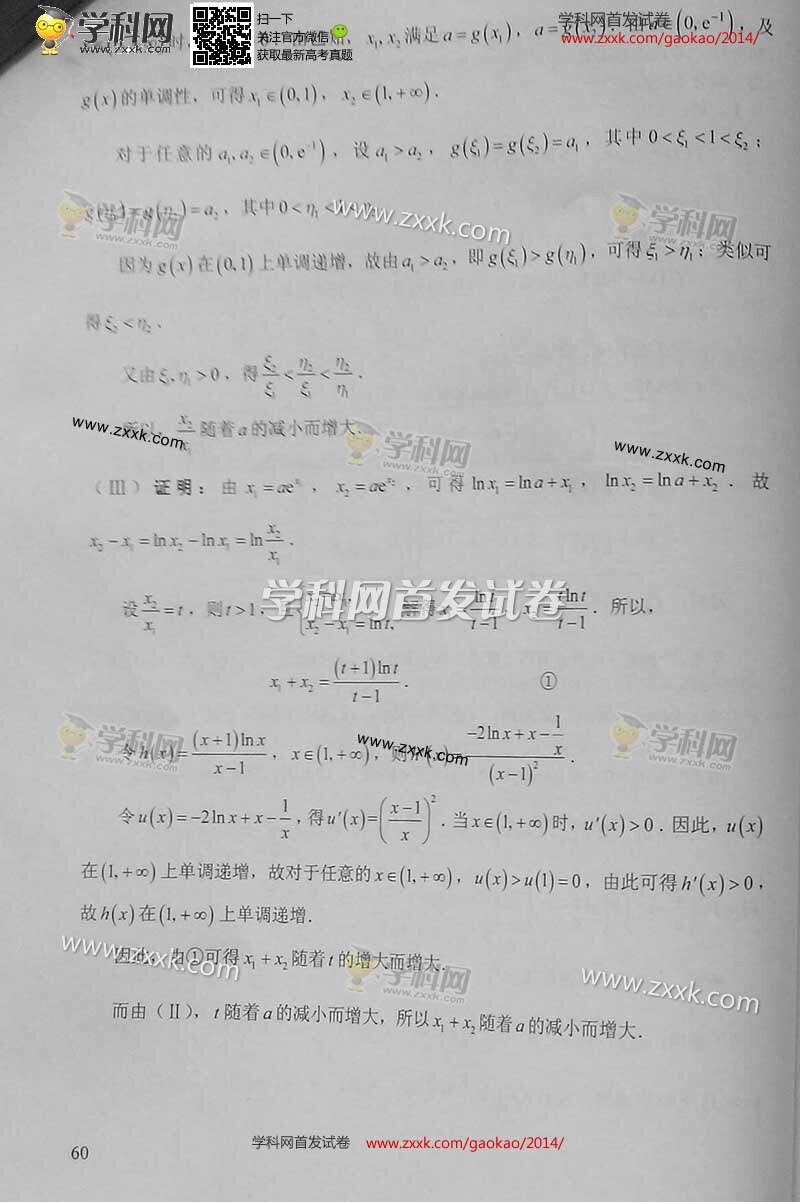 学科网
www.zxxk.com
扫一下
关注官方微信
获取最新高考真题
学科网首发试卷
www.zxxk.com/gaokao/2014/
时, x₁, x₂ 满足 a = g(x₁), (0, e⁻¹), 及
g(x) 的单调性, 可得 x₁ ∈ (0,1), x₂ ∈ (1, +∞).
对于任意的 a₁, a₂ ∈ (0, e⁻¹), 设 a₁ > a₂, g(ξ₁) = g(ξ₂) = a₁, 其中 0 < ξ₁ < 1 < ξ₂;
g(η₁) = g(η₂) = a₂, 其中 0 < η₁ <
学科网 www.zxxk.com 学科网
因为 g(x) 在 (0,1) 上单调递增, 故由 a₁ > a₂, 即 g(ξ₁) > g(η₁), 可得 ξ₁ > η₁; 类似可
得 ξ₂ < η₂.
又由 ξ₁, η₁ > 0, 得 ξ₂/ξ₁ < η₂/ξ₁ < η₂/η₁.
所以, x₂/x₁ 随着 a 的减小而增大.
www.zxxk.com 学科网 www.zxxk.com
(Ⅲ) 证明: 由 x₁ = ae^{x₁}, x₂ = ae^{x₂}, 可得 ln x₁ = ln a + x₁, ln x₂ = ln a + x₂. 故
x₂ − x₁ = ln x₂ − ln x₁ = ln x₂/x₁.
学科网首发试卷
设 x₂/x₁ = t, 则 t > 1, x₂ − x₁ = ln t, ln t/(t−1), t ln t/(t−1). 所以,
x₁ + x₂ = (t+1)ln t/(t−1). ①
学科网 www.zxxk.com 学科网
令 h(x) = (x+1)ln x/(x−1), x ∈ (1, +∞), 则 (−2ln x + x − 1/x)/(x−1)².
令 u(x) = −2ln x + x − 1/x, 得 u′(x) = ((x−1)/x)². 当 x ∈ (1, +∞) 时, u′(x) > 0. 因此, u(x)
在 (1, +∞) 上单调递增, 故对于任意的 x ∈ (1, +∞), u(x) > u(1) = 0, 由此可得 h′(x) > 0,
故 h(x) 在 (1, +∞) 上单调递增.
因此, 由①可得 x₁ + x₂ 随着 t 的增大而增大.
www.zxxk.com 学科网 www.zxxk.com
而由 (Ⅱ), t 随着 a 的减小而增大, 所以 x₁ + x₂ 随着 a 的减小而增大.
60
学科网首发试卷 www.zxxk.com/gaokao/2014/